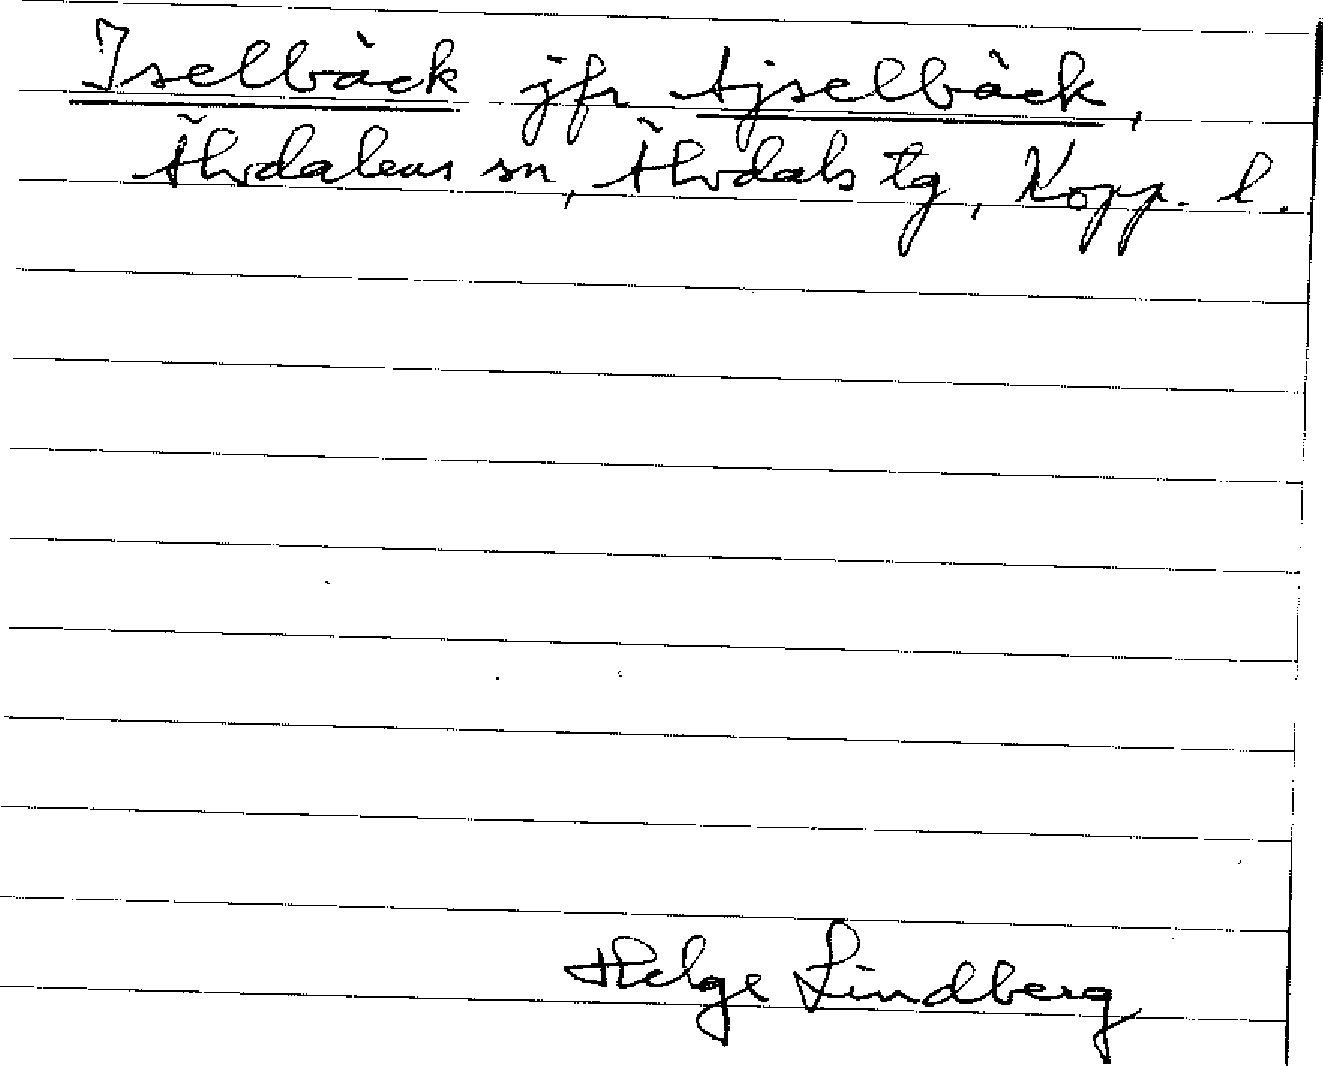 Iselbäck jfr Ajselbäck,
Älvdalens sn, Älvdals tg, Kopp. l.
Helge Lindberg